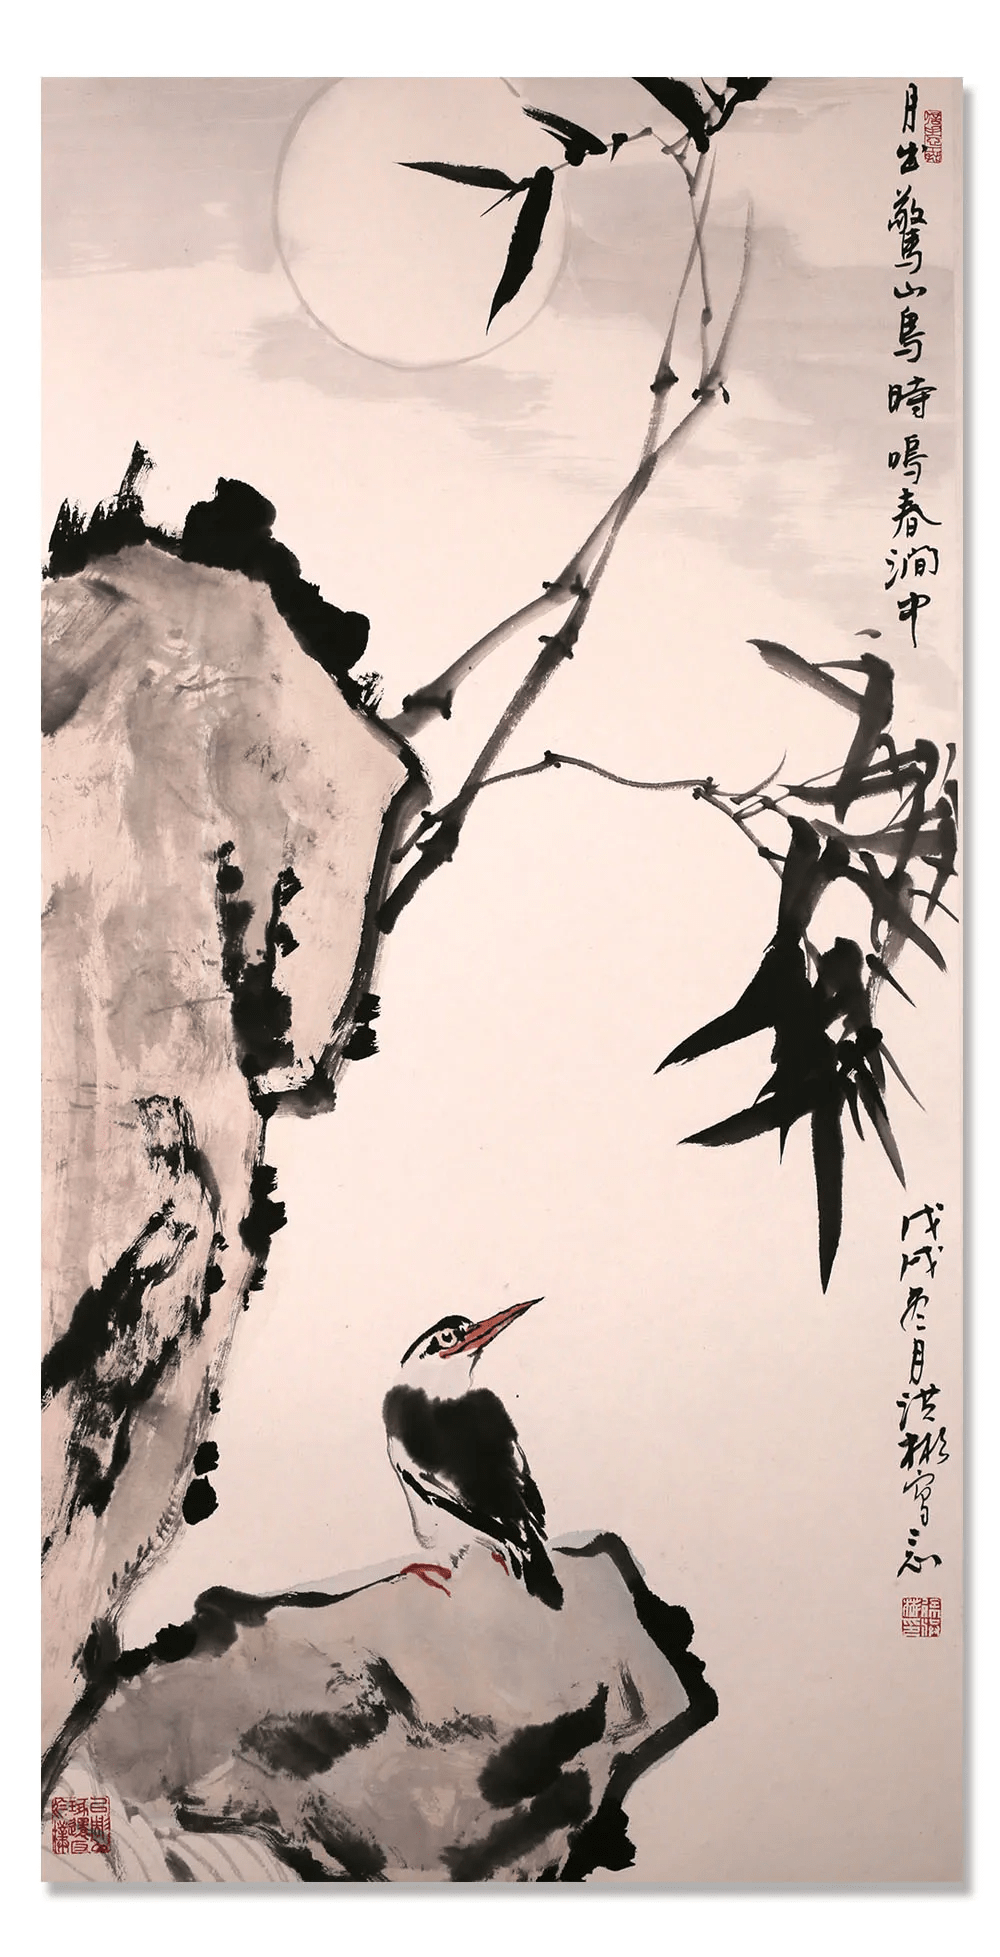 月出驚山鳥時鳴春澗中
戊戌冬月洪彬寫意